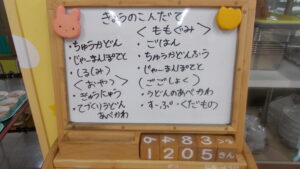 きょうのこんだて
・ちゅうかどん
・じゃーまんぽてと
・しる(み)
<おやつ>
・ぎゅうにゅう
・てづくりうどん
あべかわ
<ももぐみ>
・ごはん
・ちゅうかどんふう
・じゃーまんぽてと
(ごごしょく)
・うどんのあべかわ
・すーぷ・くだもの
1205